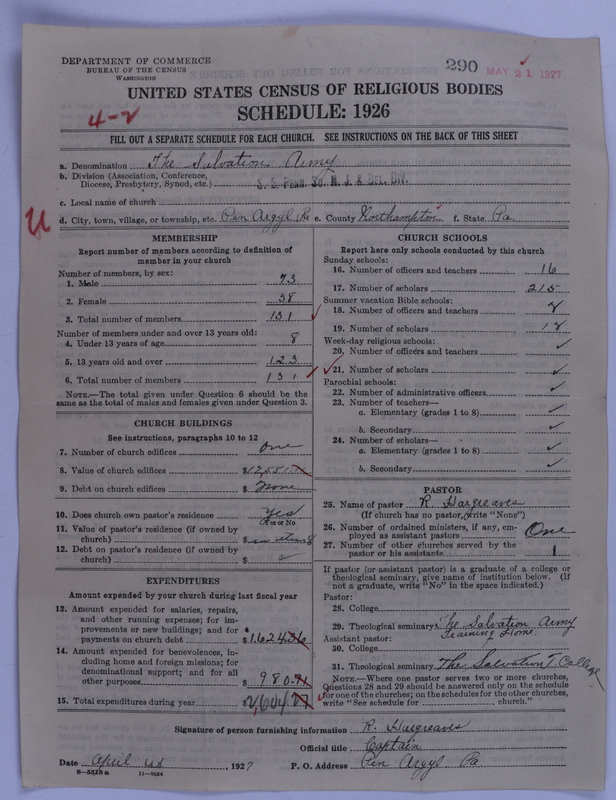 DEPARTMENT OF COMMERCE
BUREAU OF THE CENSUS
WASHINGTON
290 MAY 21 1927
UNITED STATES CENSUS OF RELIGIOUS BODIES
SCHEDULE: 1926
4-2
FILL OUT A SEPARATE SCHEDULE FOR EACH CHURCH. SEE INSTRUCTIONS ON THE BACK OF THIS SHEET
a. Denomination The Salvation Army
b. Division (Association, Conference,
Diocese, Presbytery, Synod, etc.) S. E. PENN. SO. N. J. & DEL. DIV.
c. Local name of church
u d. City, town, village, or township, etc. Pen Argyl Pa e. County Northampton f. State Pa.
MEMBERSHIP
Report number of members according to definition of
member in your church
Number of members, by sex:
1. Male 73
2. Female 58
3. Total number of members 131
Number of members under and over 13 years old:
4. Under 13 years of age 8
5. 13 years old and over 123
6. Total number of members 131
NOTE.—The total given under Question 6 should be
same as the total of males and females given under Question 3.
CHURCH BUILDINGS
See instructions, paragraphs 10 to 12
7. Number of church edifices One
8. Value of church edifices $12,551
9. Debt on church edifices $ None
10. Does church own pastor's residence Yes
(Yes or No)
11. Value of pastor's residence (if owned by
church) $ in item 8
12. Debt on pastor's residence (if owned by
church) $
EXPENDITURES
Amount expended by your church during last fiscal year
13. Amount expended for salaries, repairs,
and other running expenses; for im-
provements or new building; and for
payments on church debt $1,624.
14. Amount expended for benevolences, in-
cluding home and foreign missions; for
denominational support; and for all
other purposes $ 980.
15. Total expenditures during year $2,604.
CHURCH SCHOOLS
Report here only schools conducted by this church
Sunday schools:
16. Number of officers and teachers 16
17. Number of scholars 215
Summer vacation Bible schools:
18. Number of officers and teachers
19. Number of scholars 18
Week-day religious schools:
20. Number of officers and teachers ✓
21. Number of scholars ✓
Parochial schools:
22. Number of administrative officers ✓
23. Number of teachers—
a. Elementary (grades 1 to 8) ✓
b. Secondary ✓
24. Number of scholars—
a. Elementary (grades 1 to 8) ✓
b. Secondary ✓
PASTOR
25. Name of pastor R. Hargreaves
(If church has no pastor, write "None")
26. Number of ordained ministers, if any, em-
ployed as assistant pastors One
27. Number of other churches served by the
pastor or his assistants 1
If pastor (or assistant pastor) is a graduate of a college or
theological seminary, give name of institution below. (If
not a graduate, write "No" in the space indicated.)
Pastor:
28. College
29. Theological seminary The Salvation Army
Training Home
Assistant pastor:
30. College
31. Theological seminary The Salvation T. College
NOTE.—Where one pastor serves two or more churches,
Questions 28 and 29 should be answered only on the schedule
for one of the churches; on the schedules for the other churches,
write "See schedule for church."
Signature of person furnishing information R. Hargreaves
Official title Captain
Date April 1927 P. O. Address Pen Argyl Pa
8-5518 a 11-9054